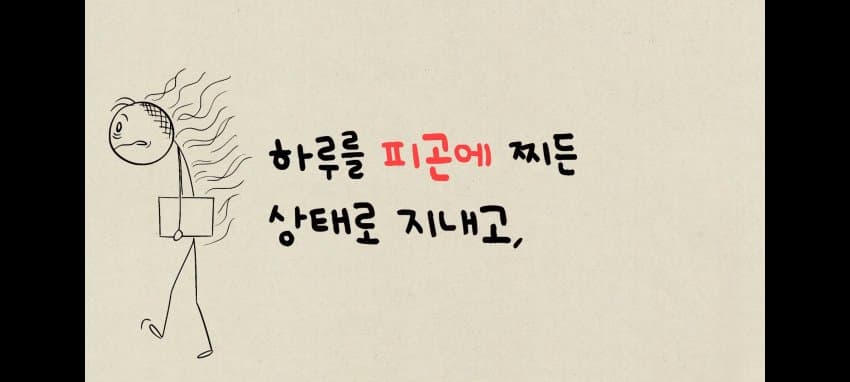 하루를 피곤에 찌든
상태로 지내고,